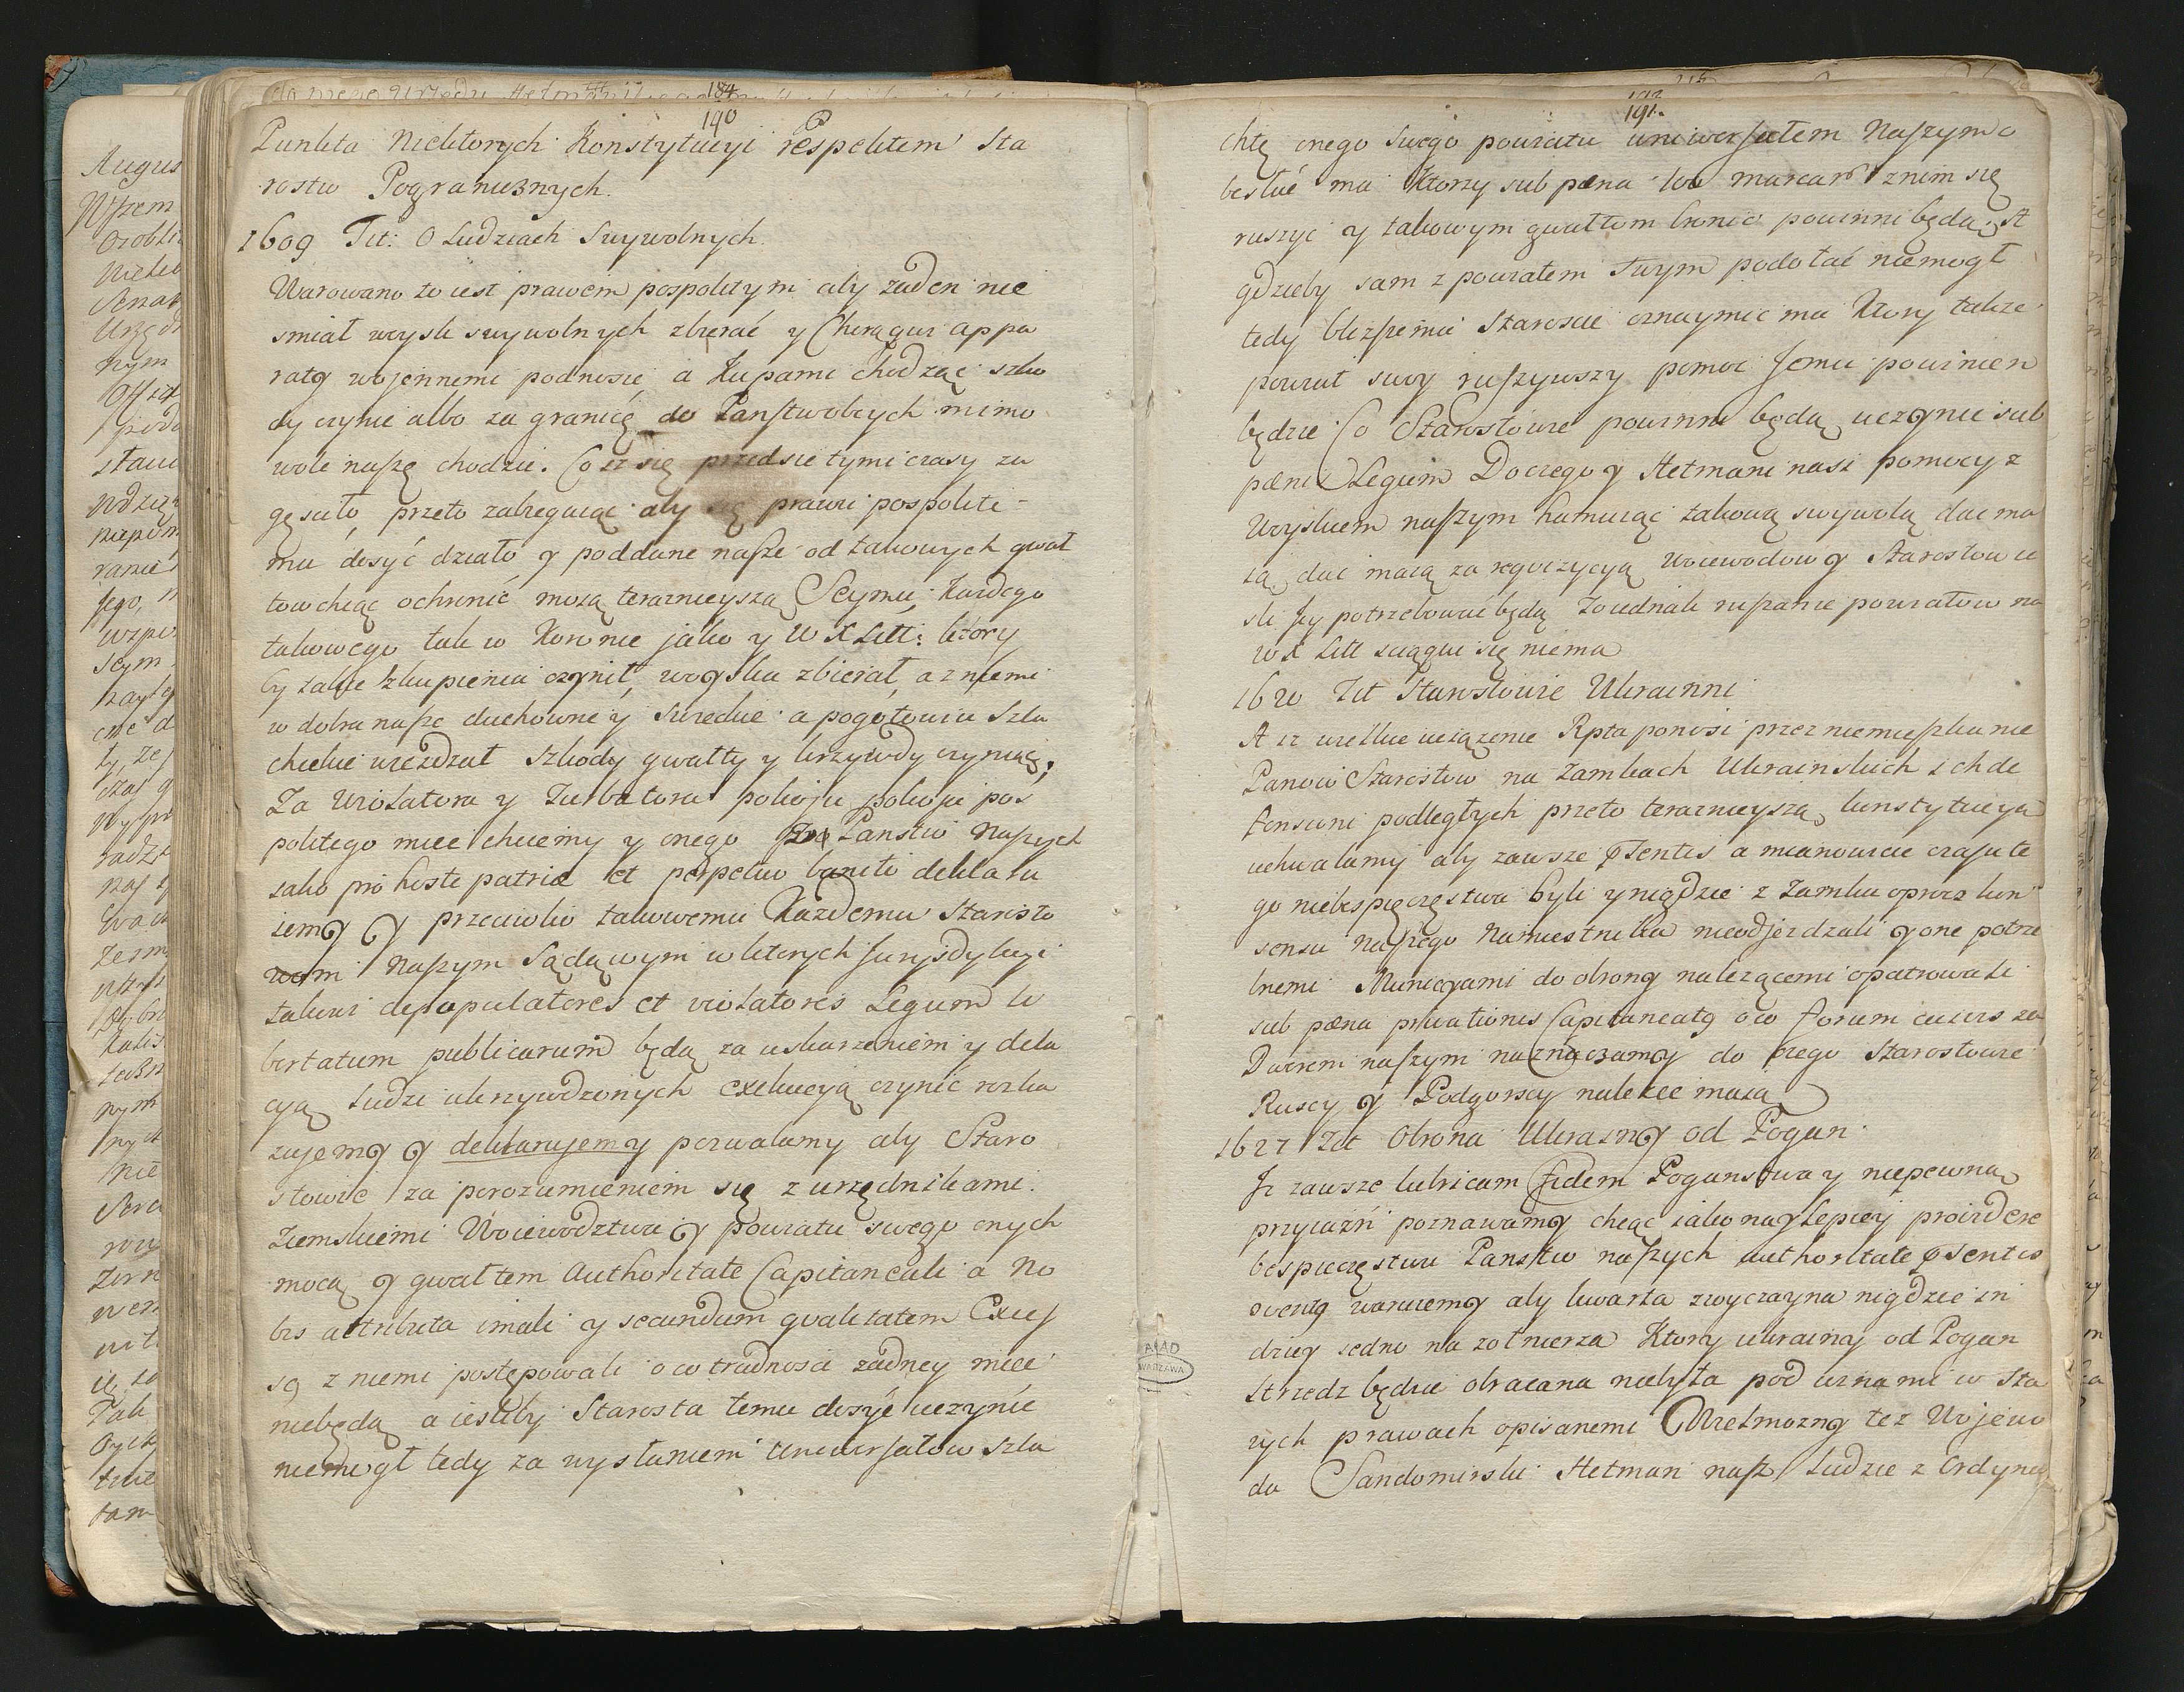 184
190
Punkta Niektorych Konstytucyi respektem Sta
rostw Pogranicznych.
1609 Tit: O Ludziach Swywolnych.
Warowano to iest prawem pospolitym aby żaden nie
smiał woysk swywolnych zbierać y Chorągwi appa
ratą wojennemi podnosic a Kupami chodząc szko
dy czynic albo za granicę do Panstw obcych mimo
wole naszę chodzic. Co iz się przedsie tymi czasy za
gęsciło, przeto zabiegaiąc aby się prawu pospolite-
mu dosyć działo y poddane nasze od takowych gwał
tow chcąc ochronić mocą teraznieyszą Seymu Kazdego
takowego tak w Koronie jako y W X Litt: ktory
by takie zkupienia czynił, woyska zbierał, a z niemi
w dobra nasze duchowne y swieckie a pogotowiu Szla
checkie wiezdzał szkody gwałty y krzywdy czyniąc,
Za Violatora y Turbatora pokoju pos
politego miec chcemy y onego Panstw Naszych
jako pro hoste patriæ et perpetuo banito deklaru
iemy y przeciwko takowemu Kazdemu Starosto
wom Naszym Sądowym w ktorych Jurysdykcyi
takowi depopulatores et violatores Legum li
bertatum publicarum będą za uskarzeniem y dela
cyą Ludzi ukrzywdzonych exekucyą czynić rozka
zujemy y deklarujemy pozwalamy aby Staro
stowie za porozumieniem się z urzędnikami
Ziemskiemi Woiewodztwa y powiatu swego onych
mocą y gwałtem Authoritate Capitaneali a No
bis attributa imali y secundum qualitatem Excess
sq z niemi postępowali o co trudnosci zadney miec
niebędą a iesliby Starosta temu dosyć uczynić
niemogł tedy za wysłaniem Uniwersałow szla
191.
chtę onego swego powiatu uniwersałem Naszym o
besłać ma Ktorzy sub pæna 100 marcar z nim się
ruszyć y takowym gwałtom bronic powinni będą. A
gdzieby sam z powiatem swym podołać niemogł
tedy blizszemu Staroscie oznaymic ma Ktory takze
powiat swoy ruszywszy pomoc Jemu powinien
będzie Co Starostowie powinni będą uczynic sub
pænis Legum Do czego y Hetmani nasi pomocy z
Woyskiem naszym hamuiąc takową swywolą dac ma
ią, dac maią za rekwizycyą Woiewodow y Starostow ie
sli Jey potrzebować będą To iednak ruszanie powiatow na
W X Litt sciągac się niema
1620 Tit Starostowie Ukrainni
A iz wielkie uciązenie Rpta ponosi przez niemieszkanie
Panow Starostow na Zamkach Ukrainskich ich de
fensowi podległych przeto teraznieyszą konstytucyą
uchwalamy aby zawsze psentes a mianowicie czasu te
go niebespieczęstwa byli y nigdzie z Zamku oprocz kon
sensu naszego Namiestnika nieodjezdzali y one potrze
bnemi Municyami do obrony należącemi opatrowali
sub pæna privationis Capitaneatq o co forum cuivis za
Dworem naszym naznaczamy do czego Starostowie
Ruscy y Podgorscy nalezec maią
1627 Tit Obrona Ukrainy od Pogan
Iz zawsze lubricam fidem Poganstwa y niepewną
przyiaźń poznawamy chcąc iako naylepiey proirdere
bespieczęstwu Panstw naszych authoritate psentis
ventq waruiemy aby kwarta zwyczayna nigdzie in
dziey iedno na zołnierza Ktory ukrainy od Pogan
strzedz będzie obracana niebyła pod winami w Sta
rych prawach opisanemi Wielmozny tez Wojewo
da Sandomirski Hetman nasz Ludzie z Ordynac